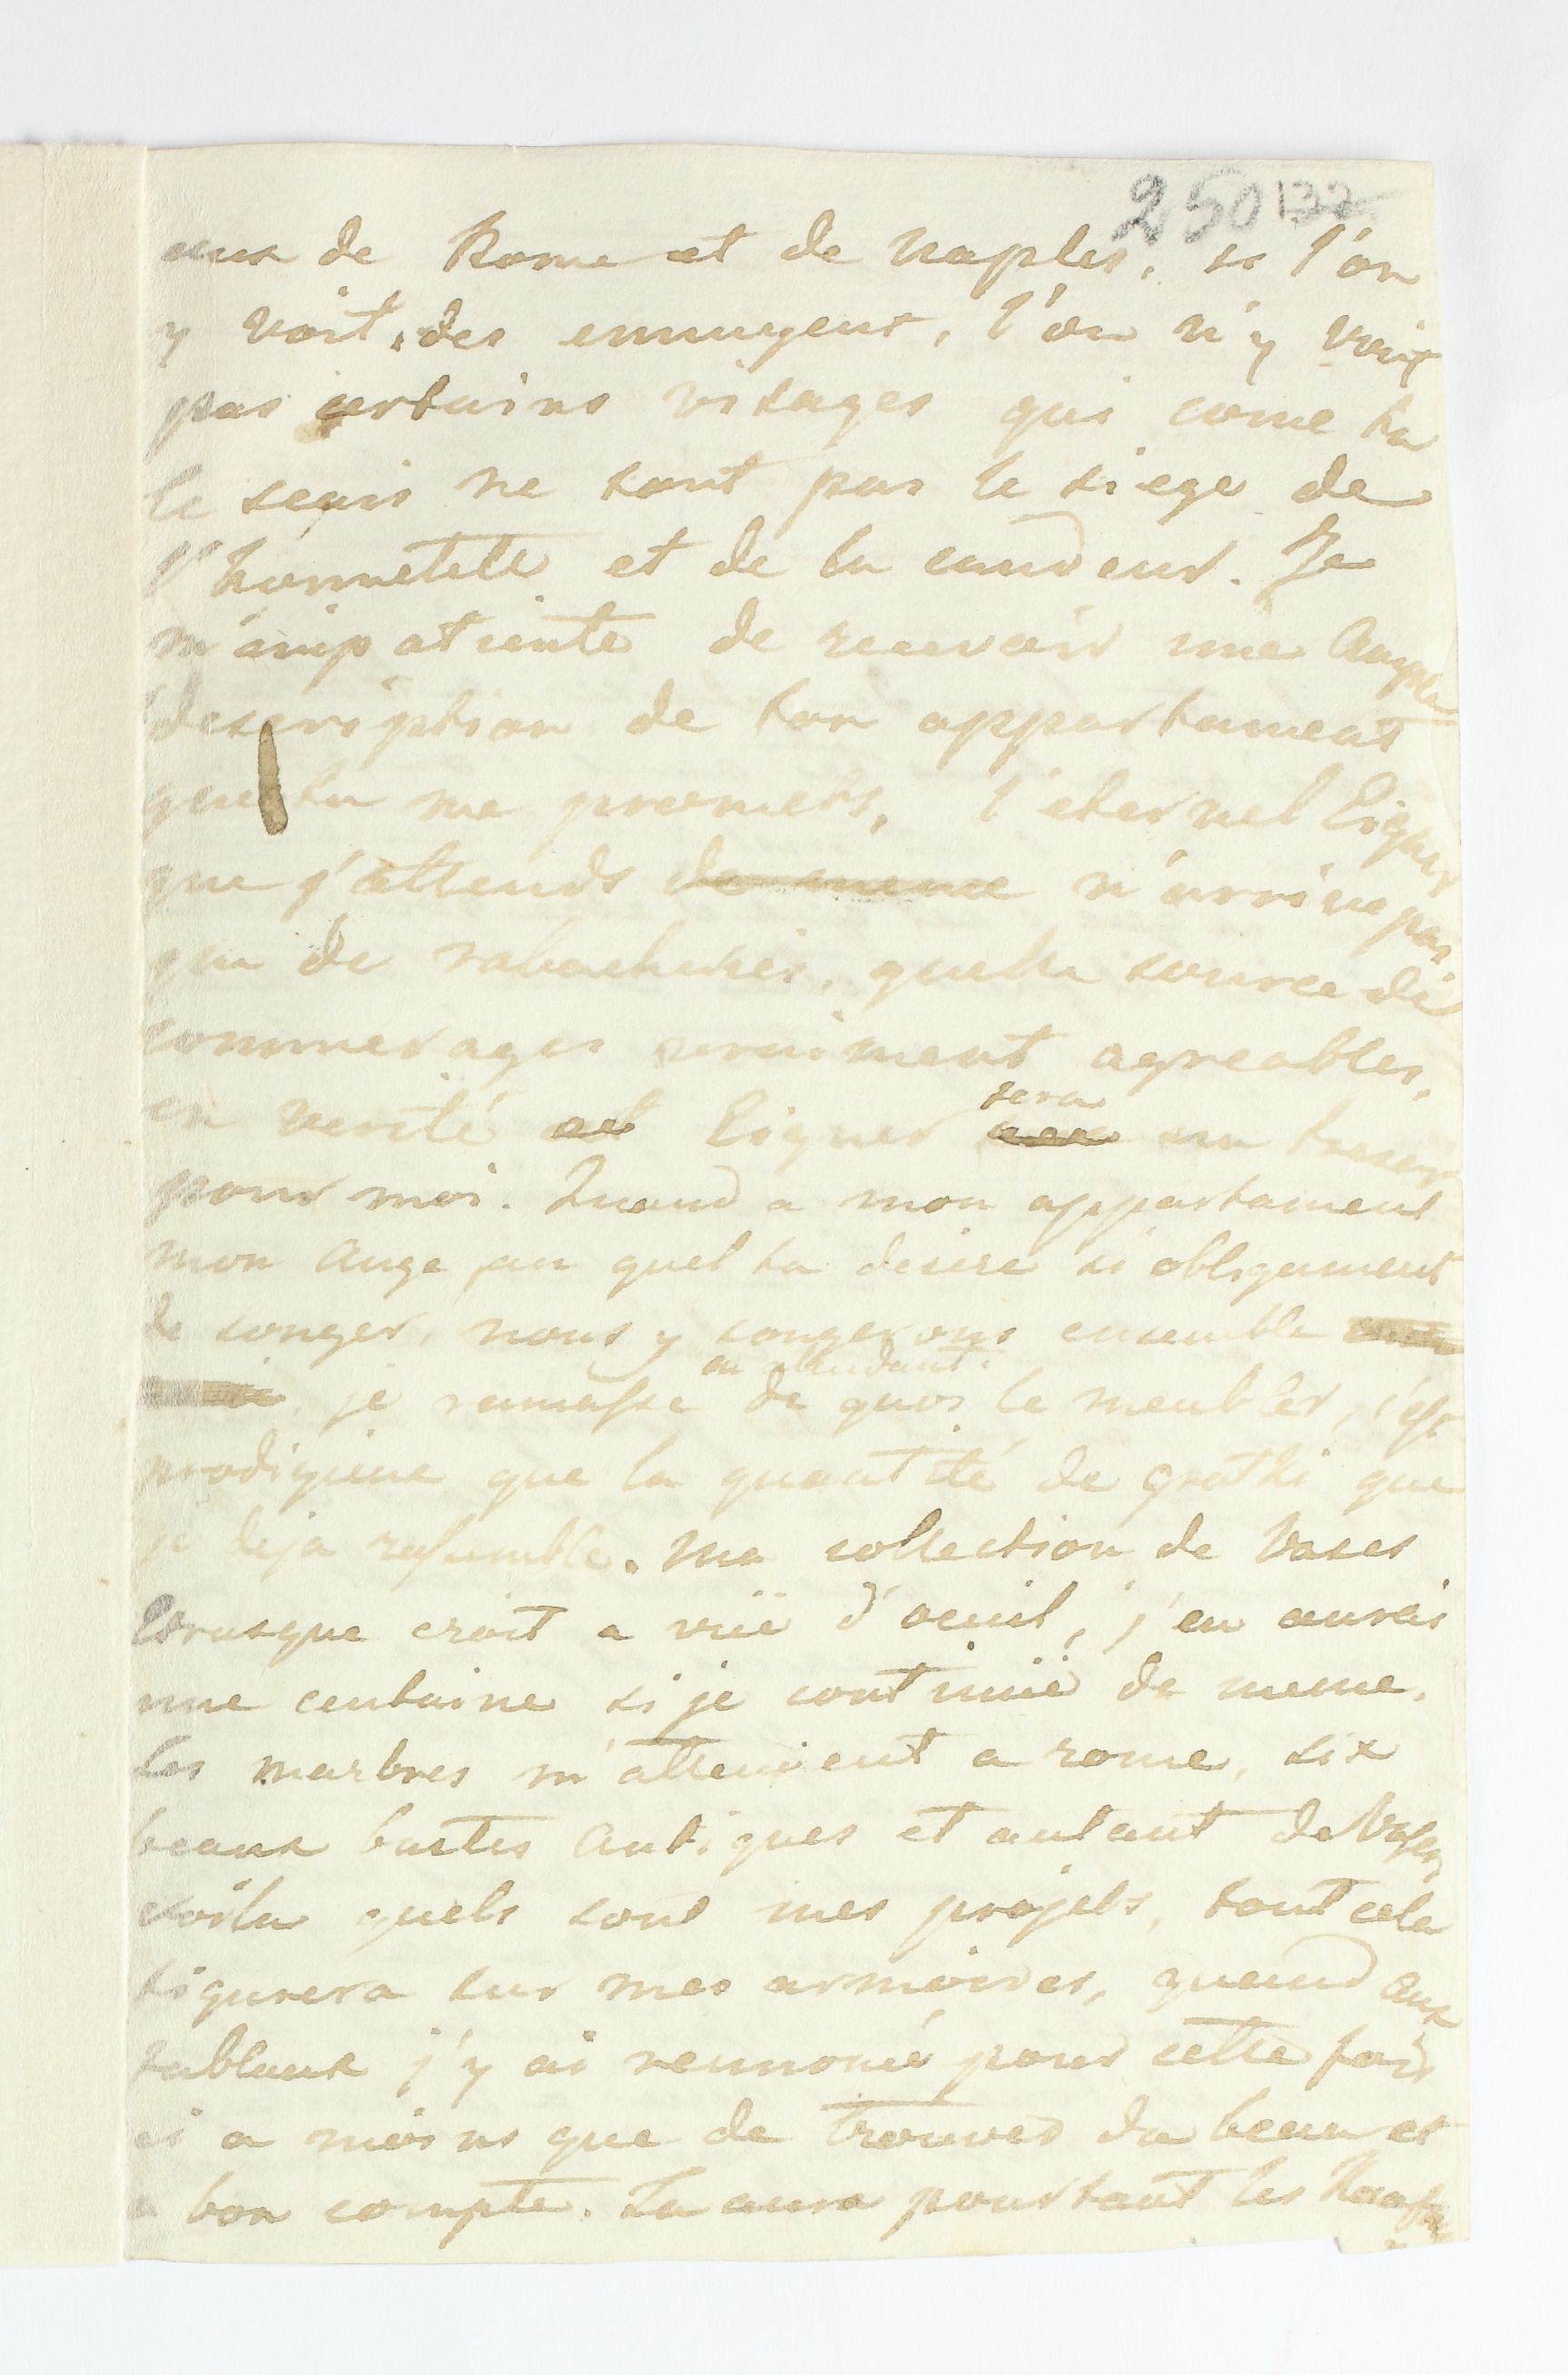 250 137
aux de Rome et de Naples, si l'on
y voit des ennuyeux, l'on n'y voit
pas certains visages qui come tu
le seais ne sont pas le siege de
l'honnetete et de la candeur. Je
m'impatiente de recevoir une ample
description de ton appartament
que tu me promets, l'eternel Eigner
que j'attends de meme n'arrive pas
que de rabacheries, quelle source de
commerages vraiment agreables,
en verité et Eigner sera un tresor
pour moi. Quand a mon appartament
mon Ange, au quel tu desire si obligament
de songer, nous y songerons ensemble
je ramasse en attendant de quoi le meubler, c'est
prodigieux que la quantité de grathi que
je deja rassemble. Ma collection de Vases
Etrusque croit a vuë d'oeuil, j'en aurais
une centaine si je continuë de meme.
les marbres m'attendent a rome, six
beaux bustes Antiques et autant de Vases,
voila quels sont mes projets, tout cela
figurera sur mes armoires, quand aux
tableaux j'y ai rennoncé pour cette fois
ci a moins que de trouver du beau et
a bon compte. Tu aura pourtant les